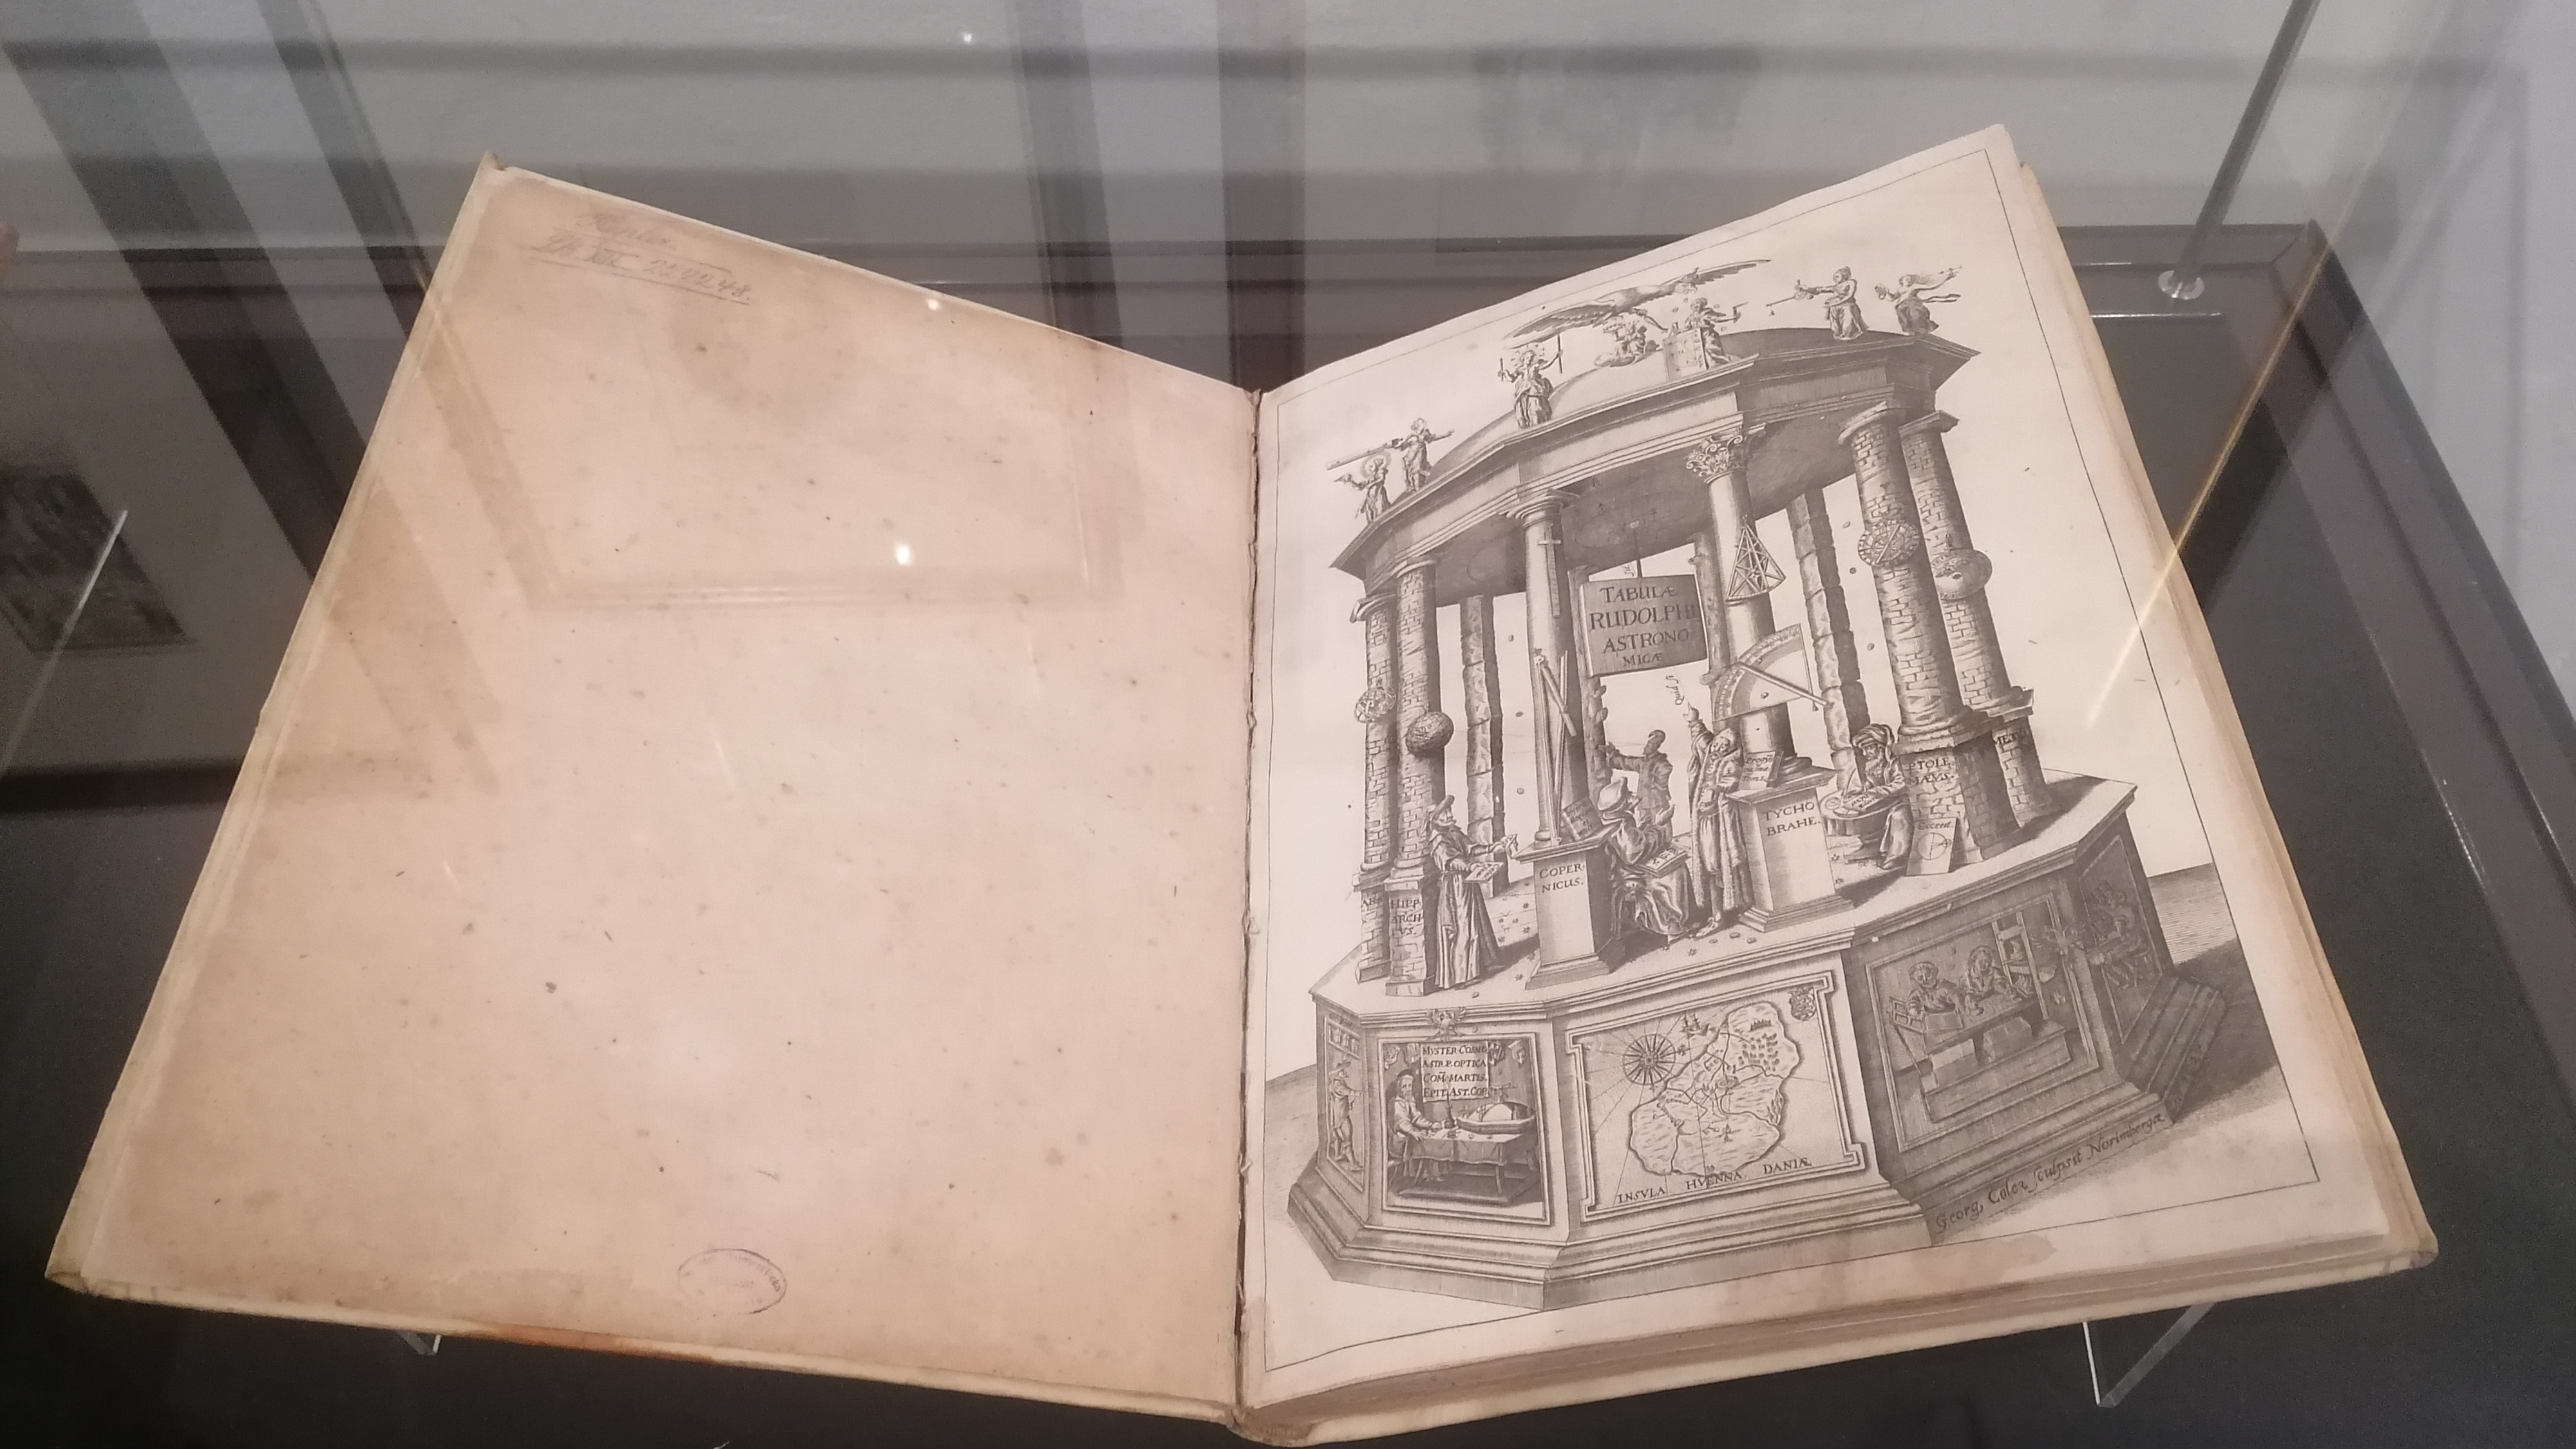 Kepler.
TABULÆ
RUDOLPHI
ASTRONO
MICÆ
COPER-
NICUS.
TYCHO
BRAHE.
PTOLE
MÆVS.
HIPP
ARCH
VS.
MYSTER COSM
ASTR.P.OPTICA
COM. MARTIS.
EPIT. AST. COP
INSVLA HVENNA. DANIÆ
Georg, Coler sculpsit Norimbergæ